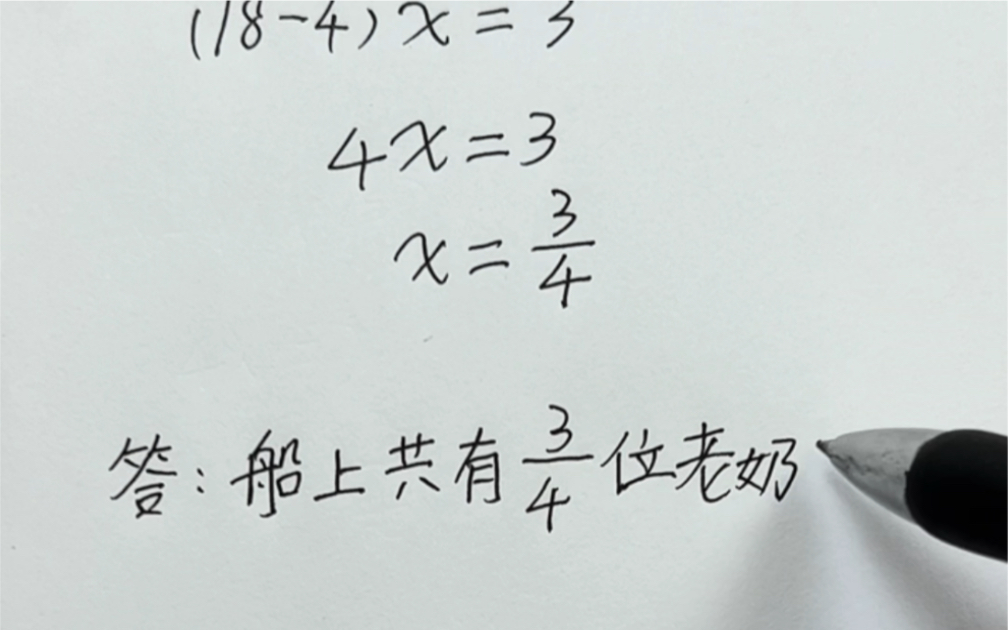 (18-4)x=3
4x=3
x=3/4
答:船上共有3/4位老奶